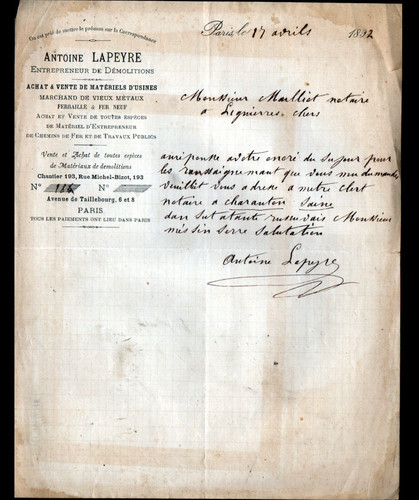 On est prié de mettre le présent sur la Correspondance
Paris le 17 avrils 1892
ANTOINE LAPEYRE
ENTREPRENEUR DE DÉMOLITIONS
ACHAT & VENTE DE MATÉRIELS D'USINES
MARCHAND DE VIEUX MÉTAUX
FERRAILLE & FER NEUF
ACHAT ET VENTE DE TOUTES ESPÈCES
DE MATÉRIEL D'ENTREPRENEUR
DE CHEMINS DE FER ET DE TRAVAUX PUBLICS
Vente et Achat de toutes espèces
de Matériaux de démolitions
Chantier 193, Rue Michel-Bizot, 193
N° N°
Avenue de Taillebourg, 6 et 8
PARIS
TOUS LES PAIEMENTS ONT LIEU DANS PARIS
Monsieur Malliet notaire
a Lignierres chers
anreponse avotre encré du Sujour pour
les ranssaignemant que vous meu demande
veuillit vous adresé a metre clert
notaire a charanton Saine
dan sut atante reseuvais Monsieur
més sin serre salutation
Antoine Lapeyre